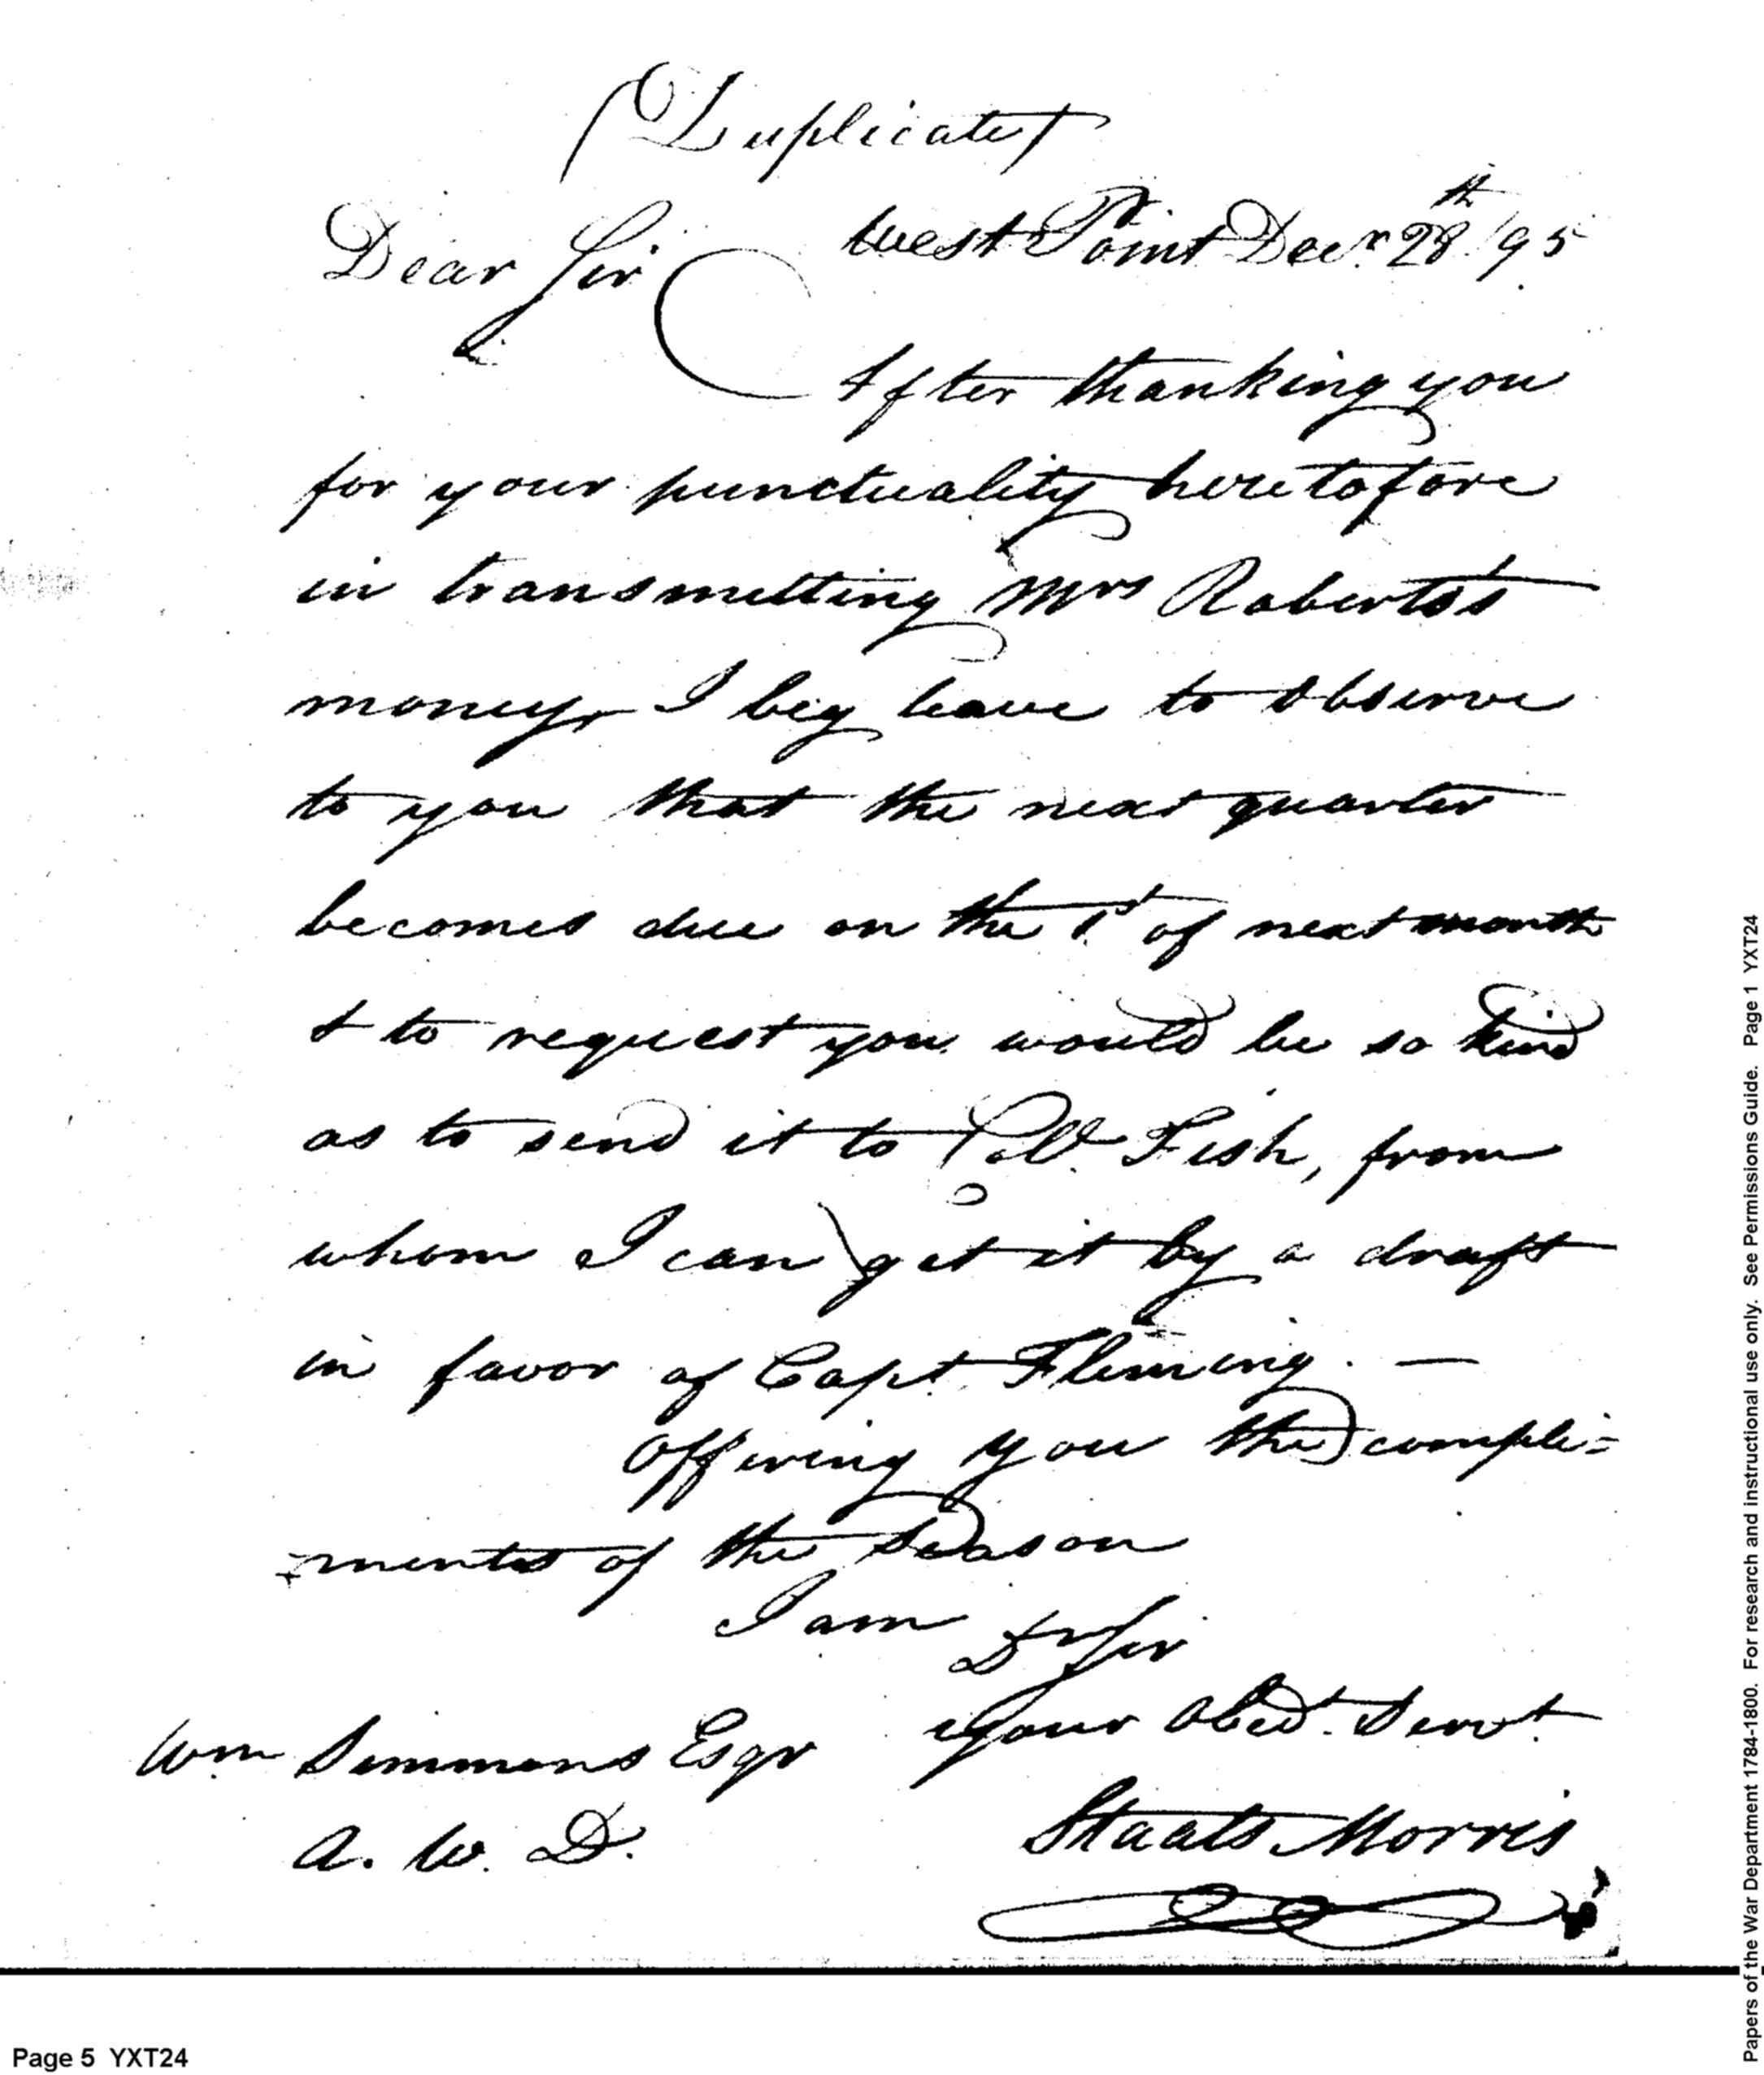 (Duplicate)
West Point Decr. 28th /95
Dear Sir
After thanking you
for your punctuality heretofore
in transmitting Mrs Roberts's
money, I beg leave to observe
to you that the next quarter
becomes due on the 1st of next month
& to request you would be so kind
as to send it to Coll. Fish, from
whom I can get it by a draft
in favor of Capt. Fleming. —
Offering you the compli-
-ments of the Season
I am Dr Sir
Your Obed. Servt.
Wm Simmons Esqr
A. W. D.
Staats Morris
Page 5 YXT24
Papers of the War Department 1784-1800. For research and instructional use only. See Permissions Guide. Page 1 YXT24